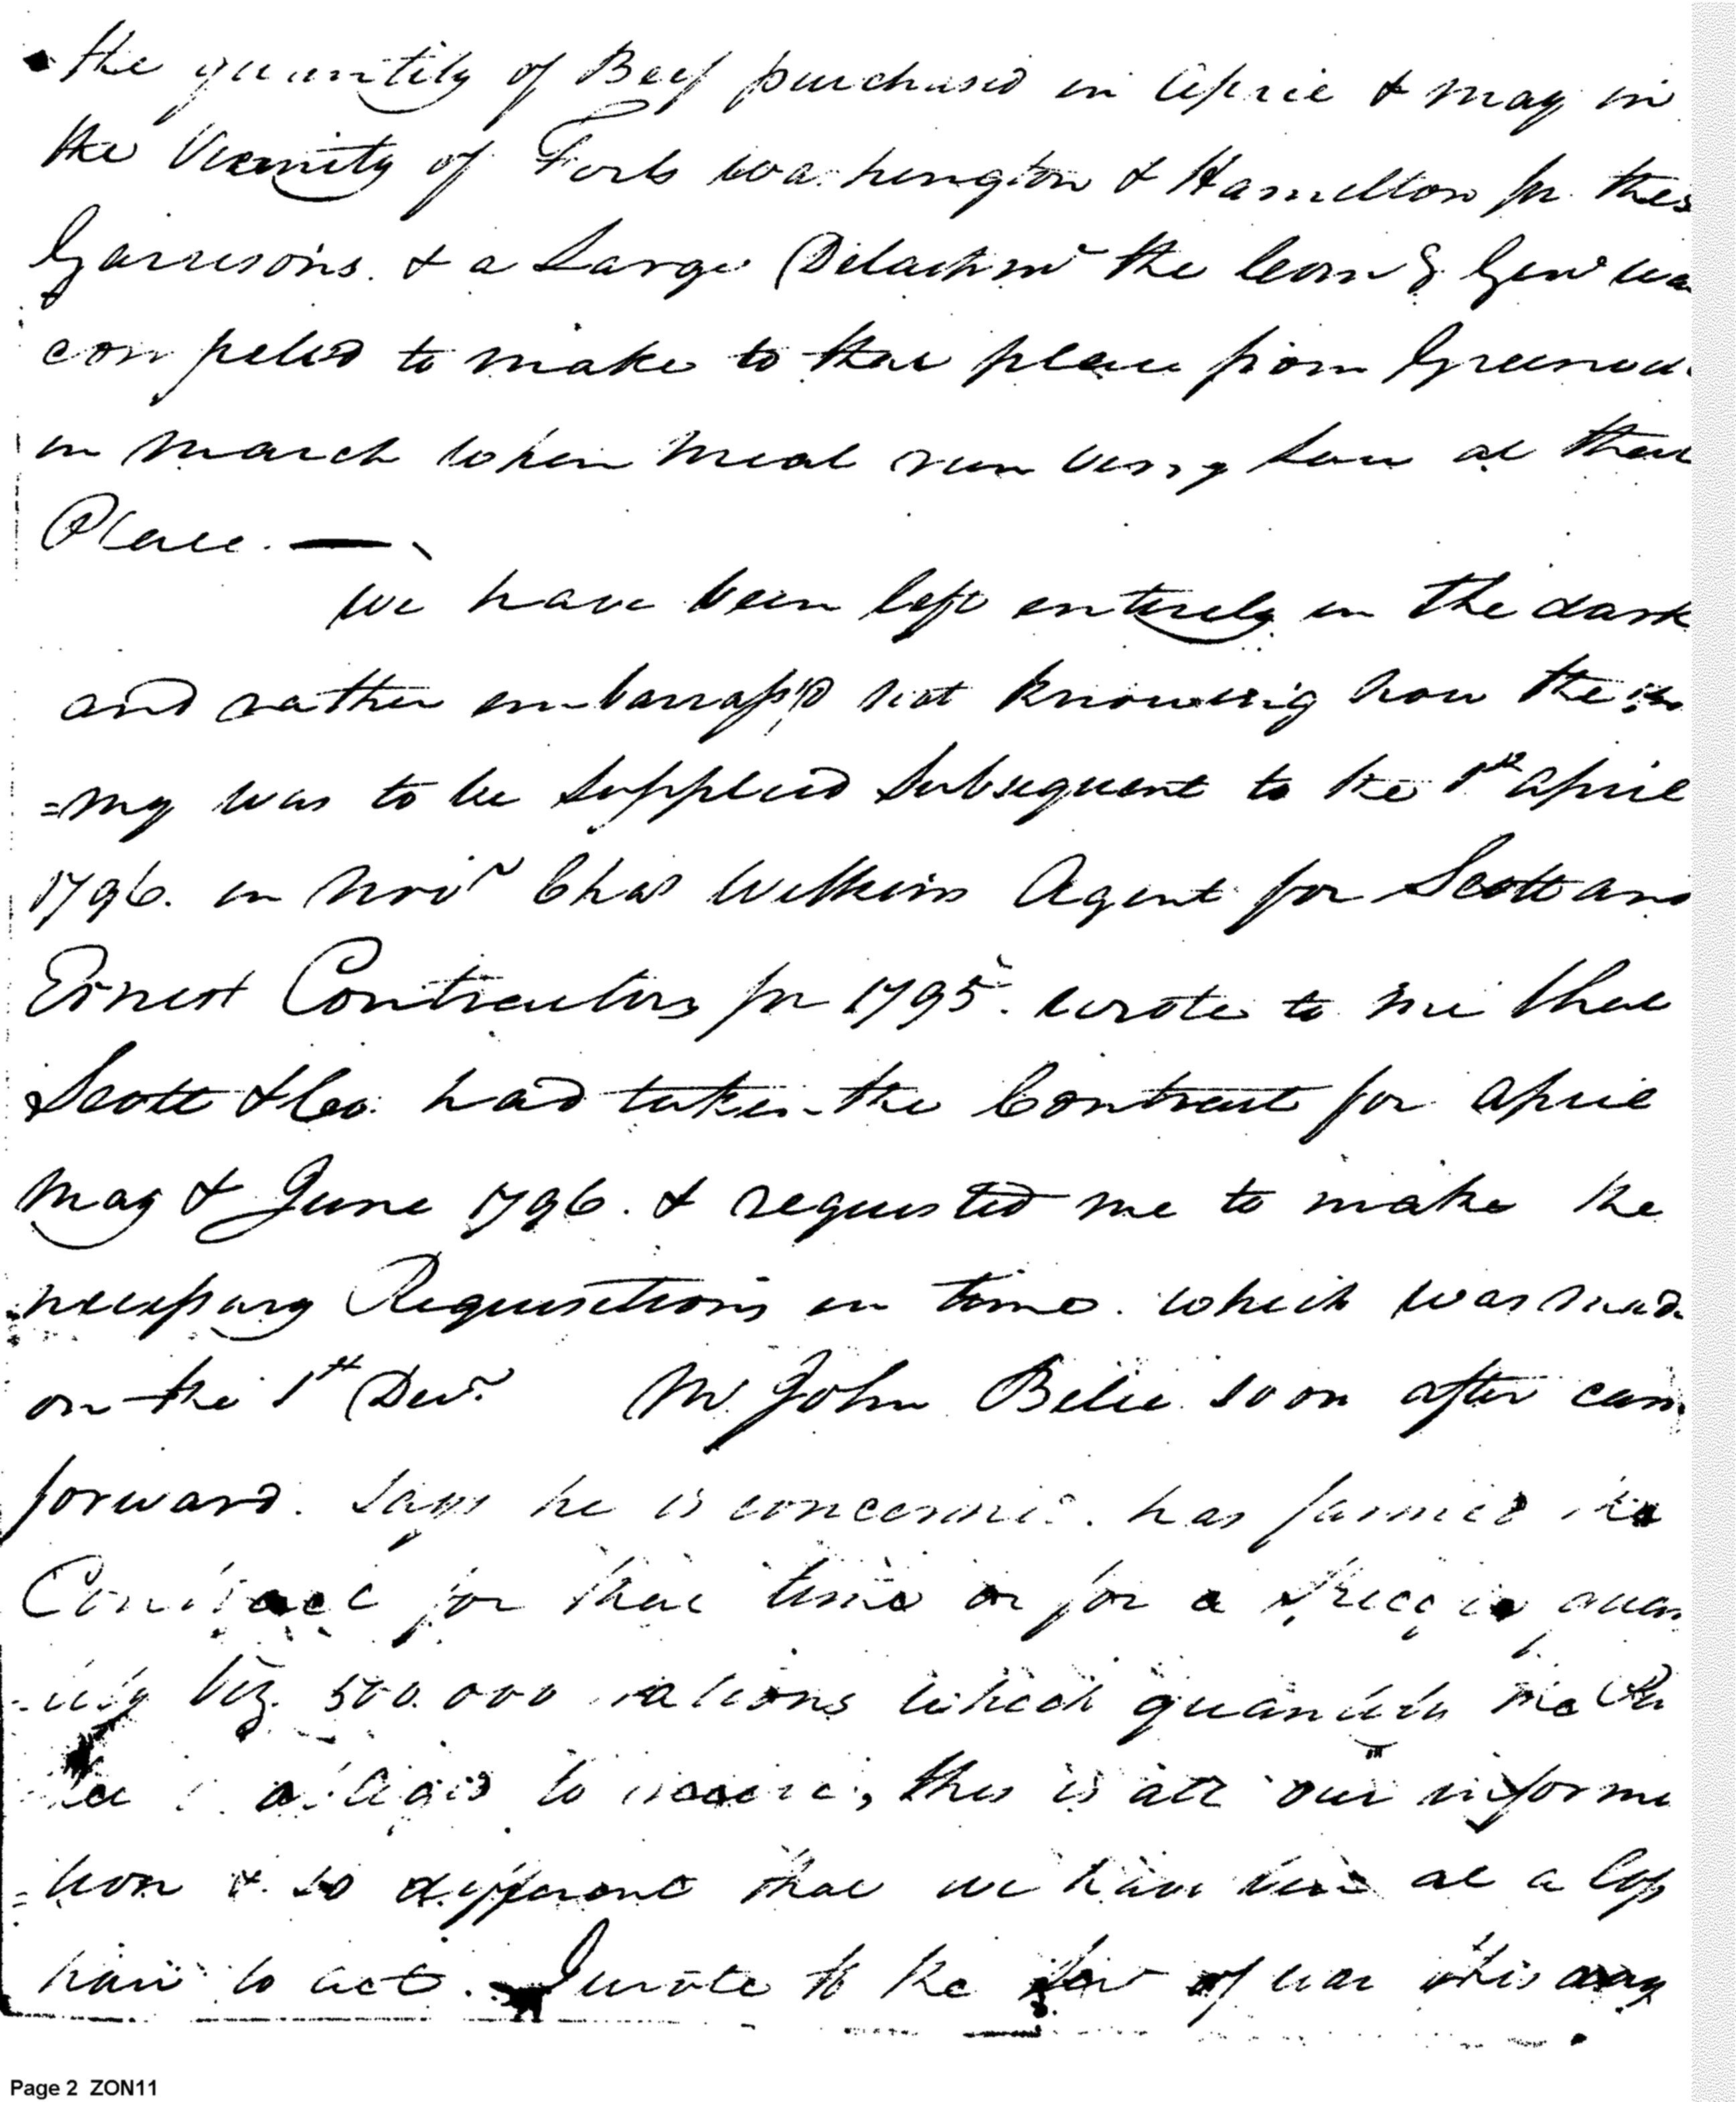 the quantity of Beef purchased in April & may in
the Vicinity of Forts Washington & Hamilton for thes
Garrisons. & a Large Detachmt the Com g Genl wa
compeled to make to that place from Greenvil
in march when meat run very Low at that
Place. —
we have been left entirely in the dark
and rather embarrass'd not knowing how the
=my was to be supplied Subsequent to the 1st april
1796. in Novr Chas Wilkins Agent for Scott and
Ernest Contractors for 1795. wrote to me that
Scott & Co. had taken the Contract for april
May & June 1796. & requested me to make the
necessary Requisitions in time. which was made
on the 1st Decr. Mr John Belie soon after cam
forward. Says he is concerned. has farmed the
Contract for that time or for a Specific quan
-tity Viz. 500.000 rations which quantity the Pu
obliged to receive, this is all our informa
=tion & so different that we have been at a loss
how to act. I wrote to the Secr of war this
Page 2 ZON11